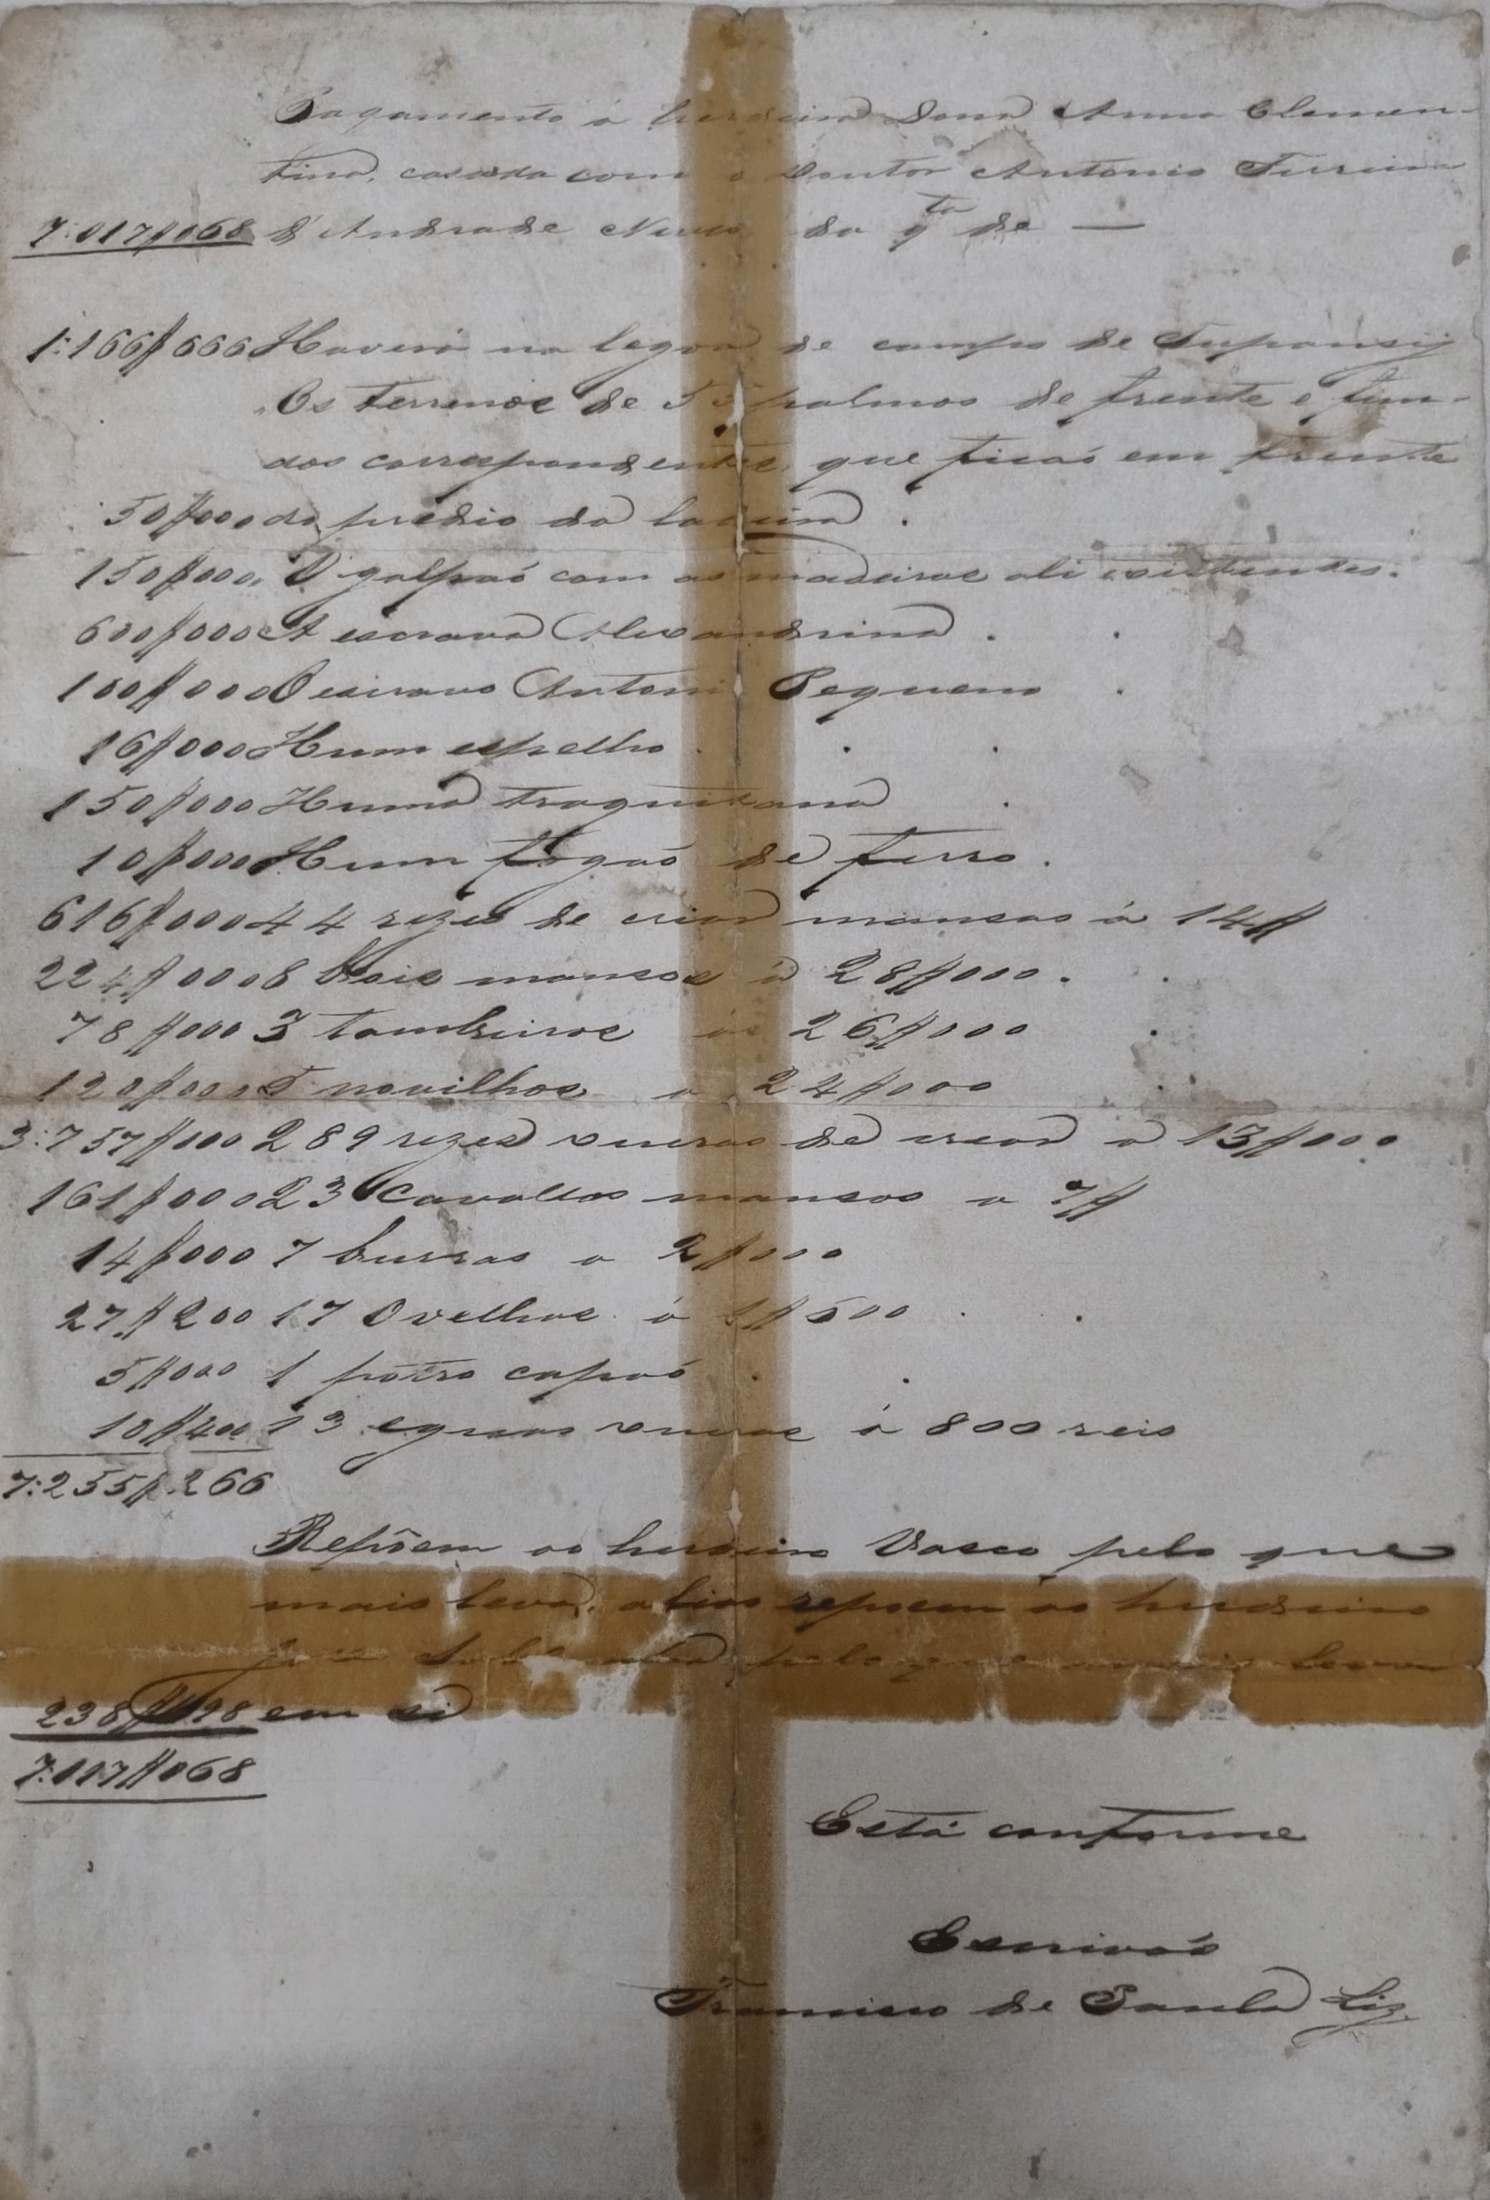 Pagamento á herdeira Dona Anna Clemen-
tina, casada com o Doutor Antonio Ferreira
7:017$068 d'Andrade Neves da q.ta de —
1:166$666 Haverá na legoa de campo de Tupansy
Os terrenos de 55 palmos de frente e fun-
dos correspondentes, que ficaó em frente
50$000 do predio da ladeira .
150$000 O galpaó com as madeiras ali existentes.
600$000 A escrava Alexandrina .
100$000 O escravo Antonio Pequeno .
16$000 Hum espelho . . .
150$000 Huma traquitana .
10$000 Hum fogaó de ferro .
616$000 44 rezes de criar mansas á 14$
224$000 8 bois mansos á 28$000 . .
78$000 3 tambeiros á 26$000 .
120$000 5 novilhos a 24$000 .
3:757$000 289 rezes xucras de crear a 13$000
161$000 23 Cavallos mansos a 7$
14$000 7 burras a 2$000
27$200 17 Ovelhas á 1$600 . .
5$000 1 potro capaó . .
10$400 13 eguas xucras á 800 reis
7:255$266
Repôem ao herdeiro Vasco pelo que
mais leva, alias repoem ao herdeiro
pelo que mais leva
238$198 em si
7:017$068
Está conforme
Escrivaó
Francisco de Paula Liz